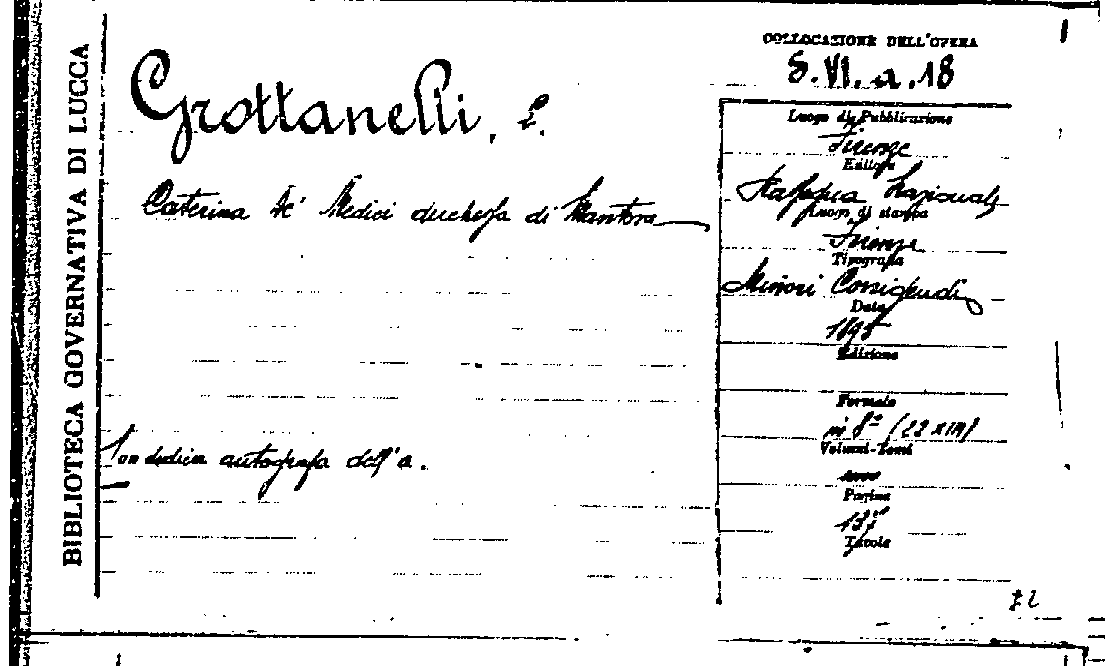 BIBLIOTECA GOVERNATIVA DI LUCCA
COLLOCAZIONE DELL'OPERA
S.VI.a.18
Grottanelli, L.
Caterina de' Medici duchessa di Mantova
Con dedica autografa dell'a.
Luogo di Pubblicazione
Firenze
Editore
Rassegna Nazionale
Luogo di stampa
Firenze
Tipografia
Minori Corrigendi
Data
1895
Edizione
Formato
in 8°
Volumi-Tomi
uno
Pagine
Tavole